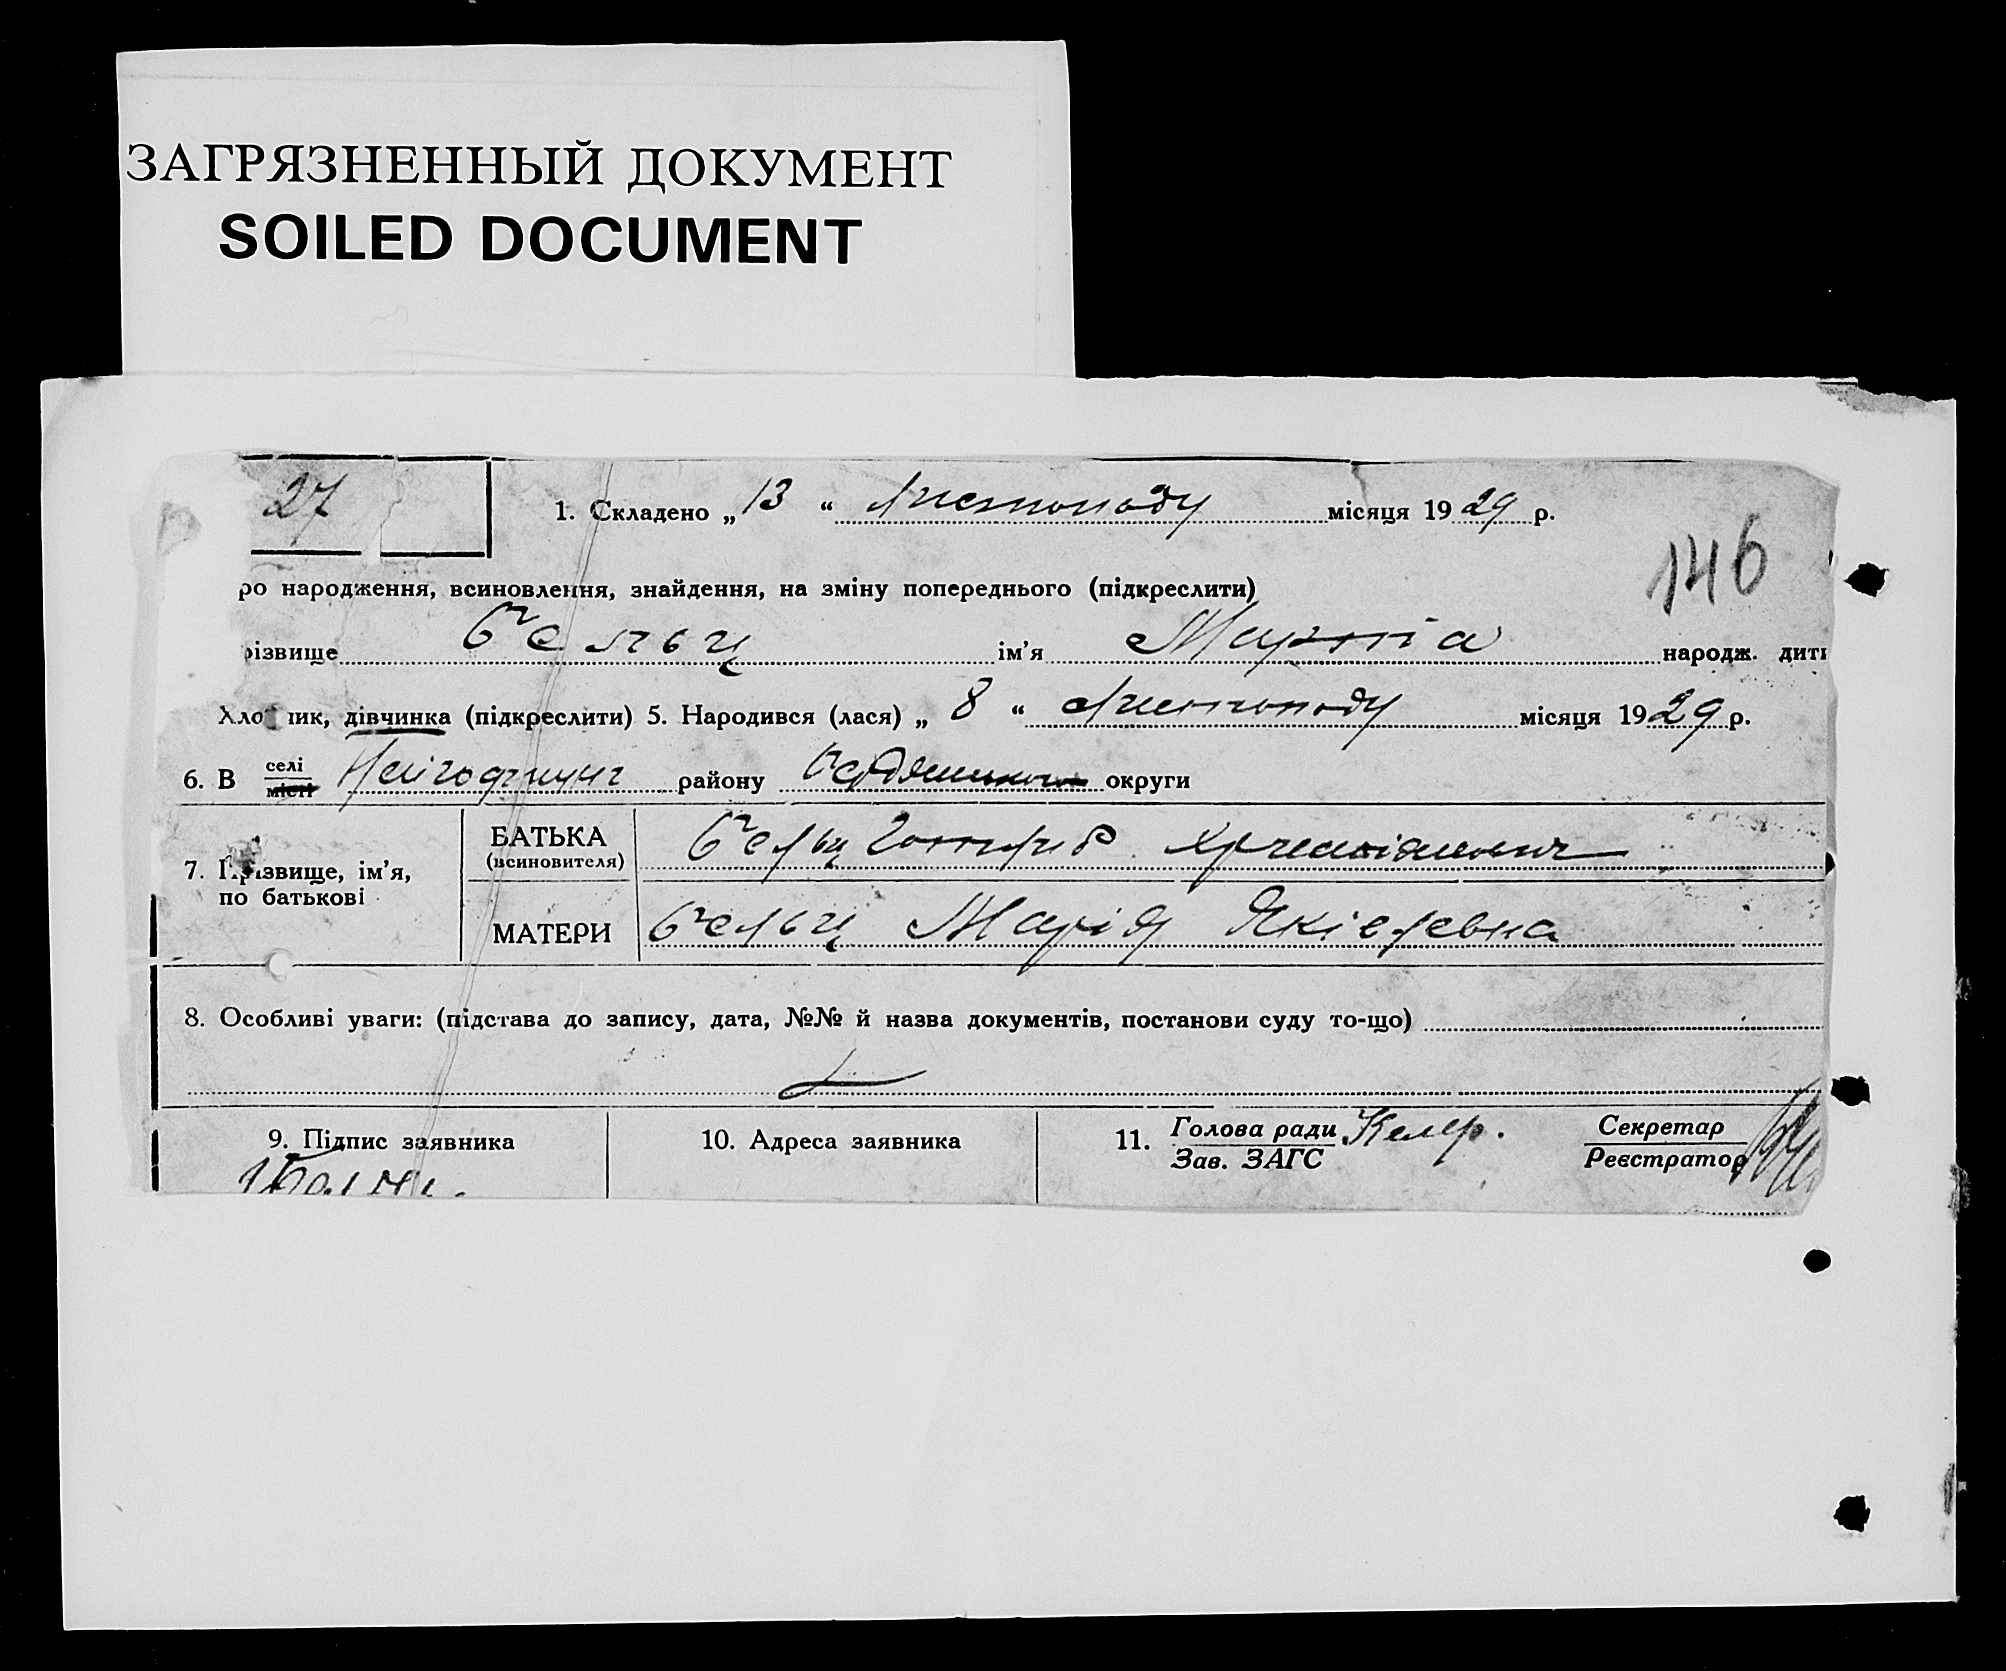 ЗАГРЯЗНЕННЫЙ ДОКУМЕНТ
SOILED DOCUMENT
27
1. Складено „ 13 “ листопаду місяця 1929 р.
146
ро народження, всиновлення, знайдення, на зміну попереднього (підкреслити)
різвище Бельц ім’я Марта народж. дити
Хлопчик, дівчинка (підкреслити) 5. Народився (лася) „ 8 “ листопаду місяця 1929 р.
6. В селі місті району округи
7. Прізвище, ім’я, по батькові
БАТЬКА (всиновителя) Бельц Готлиб
МАТЕРИ Бельц Марія
8. Особливі уваги: (підстава до запису, дата, №№ й назва документів, постанови суду то-що)
9. Підпис заявника
10. Адреса заявника
11. Голова ради Зав. ЗАГС Келер.
Секретар Реєстратор